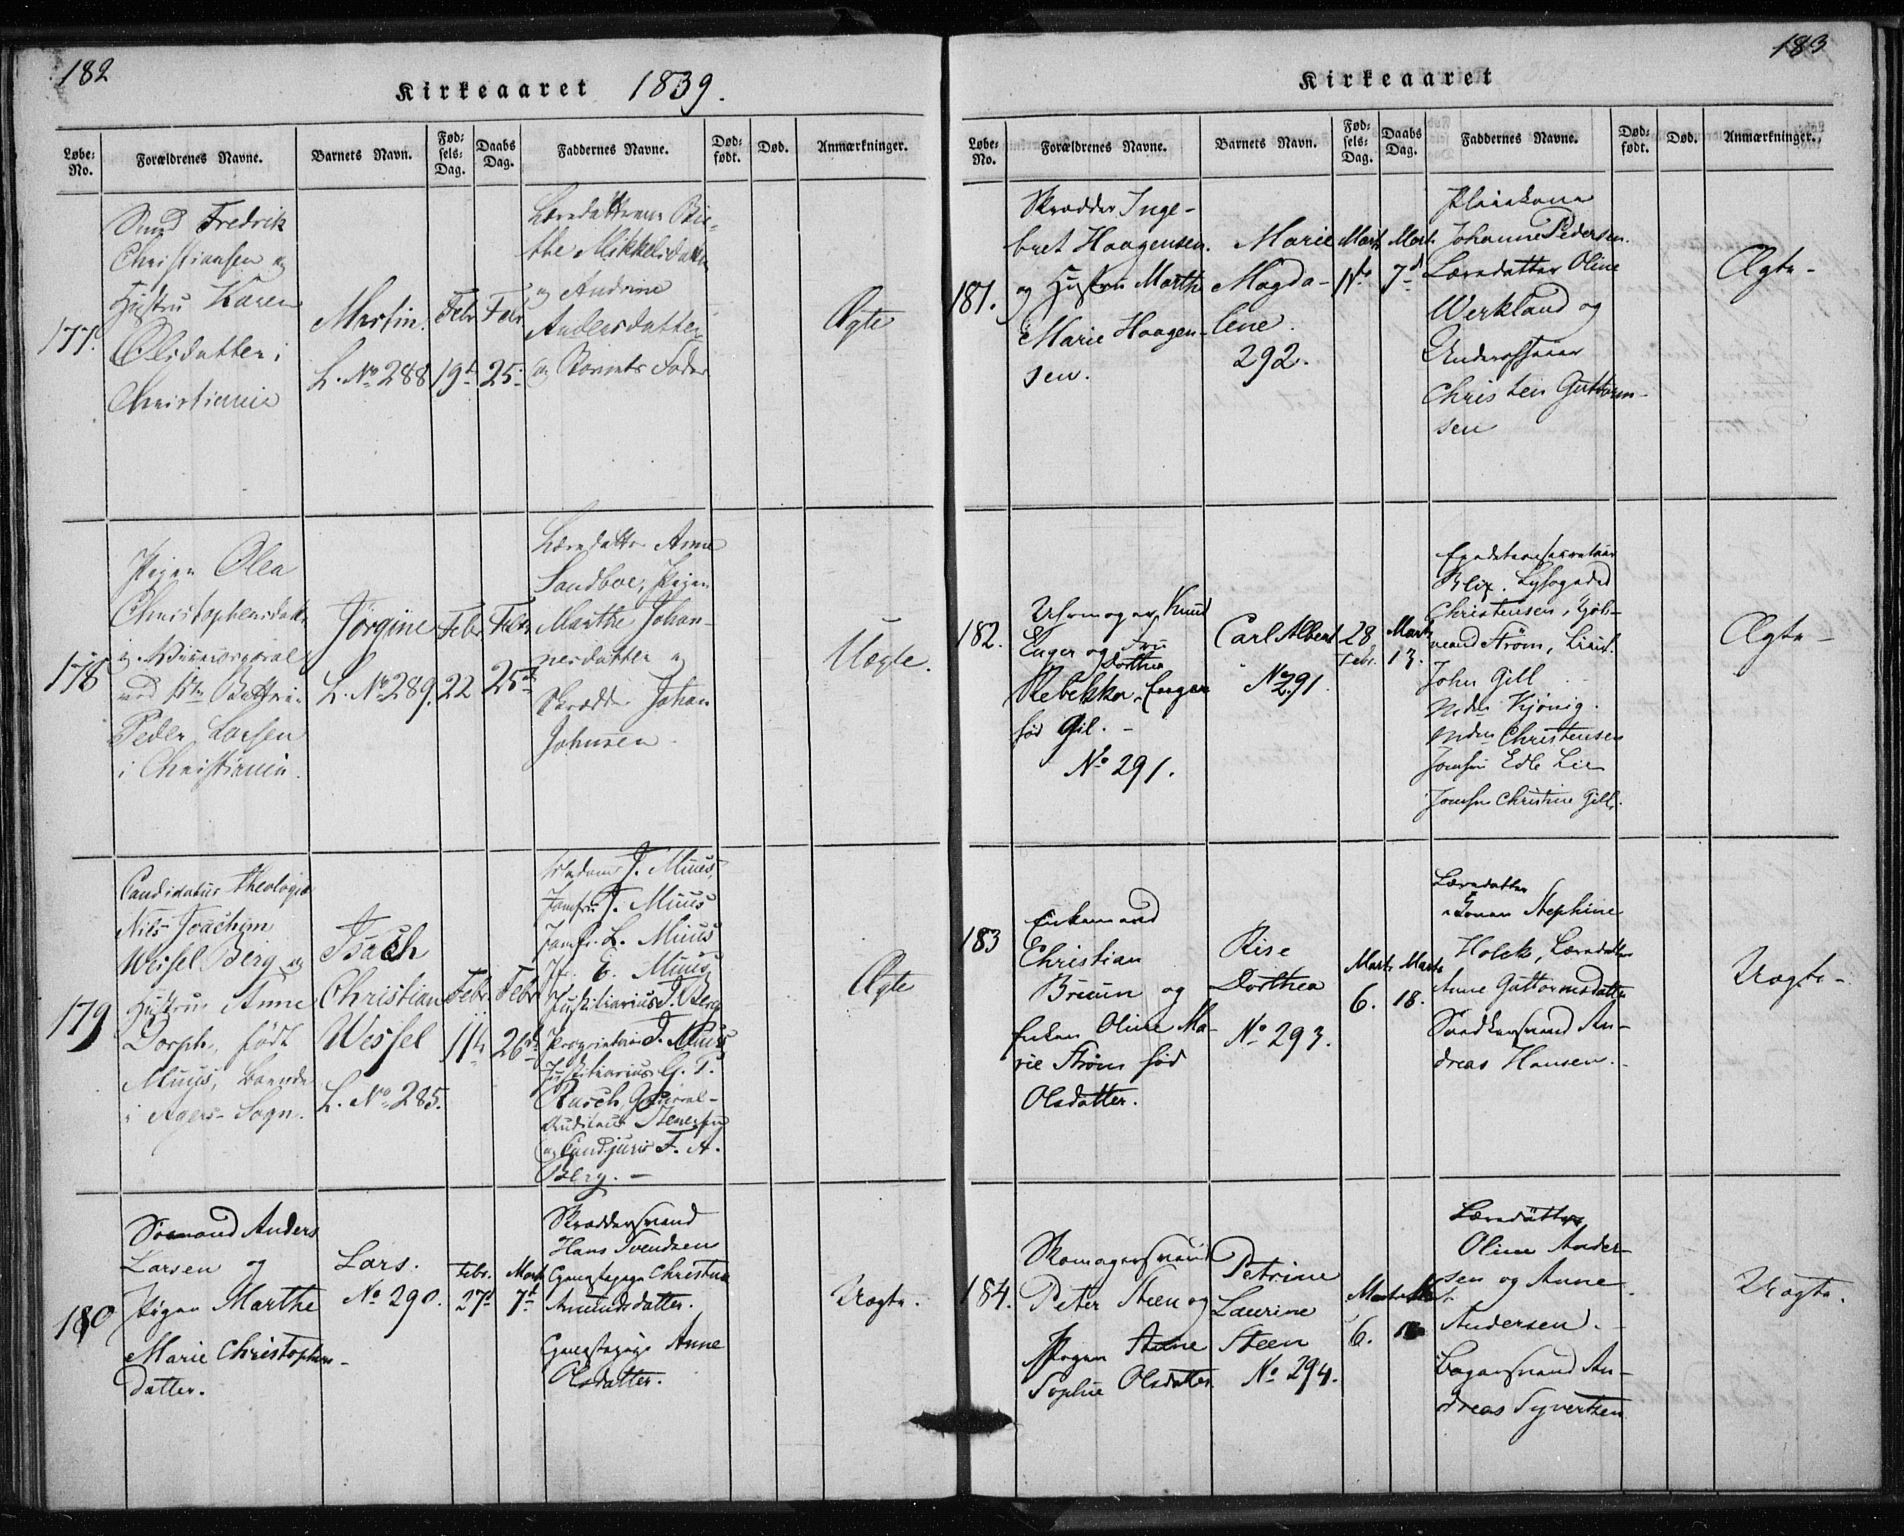 182
Kirkeaaret 1839.
Løbe-No.
Forældrenes Navne.
Barnets Navn.
Fød-sels-Dag.
Daabs Dag.
Faddernes Navne.
Død-født.
Død.
Anmærkninger.
177.
Fredrik
Christiansen og
Hustru Karen
Olsdatter i
Christiania
Martin.
L. No 288
Febr
19d
Febr
25.
the Mikkelsdatter
og Andrine
Andersdatter
og Barnets Fader
Ægte
178
Pigen Olea
Christophersdatt.
Peder Larsen
i Christiania.
Jörgine
L. No 289.
Febr
22
Febr
25d
Læredatter Anne
Sandboe, Pigen
Marthe Johan-
nesdatter og
Skrædder Johan
Johnsen
Uægte.
179
Candidatus Theologiæ
Niels Joachim
Wessel Berg og
Hustru Anne
Dorph, født
Muus, boende
i Agers-Sogn.
Isach
Christian
Wessel
L. No 285.
Febr
11te
Febr
26d
Madame J. Muus,
Jomfru J. Muus
Jomfr. L. Muus
Jf. E. Muus,
Justitiarius J. Berg
Proprietair J. Muus
Justitiarius C. F.
Rasch, General-
Auditeur Stenersen
og Cand. juris F. A.
Berg. —
Ægte
180
Sömand Anders
Larsen og
Pigen Marthe
Marie Christophers-
datter.
Lars.
No 290.
Febr.
27d
Marts
7d
Skræddersvend
Hans Svendsen
Gangpige Christine
Amundsdatter.
Gangpige Anne
Olsdatter.
Uægte.
183
Kirkeaaret
Løbe-No.
Forældrenes Navne.
Barnets Navn.
Fød-sels-Dag.
Daabs Dag.
Faddernes Navne.
Død-født.
Død.
Anmærkninger.
181.
Skrædder Inge-
bret Haagensen.
og Hustru Marthe
Marie Haagen-
sen.
Marie
Magda-
lene.
292.
Marts
1ste
Mart.
7d
Pleiekone
Johanne Pedersen.
Læredatter Oline
Werkland og
Underofficeer
Christen Guttorm-
sen
Ægte —
182.
Uhrmager Knud
Enger og Fru
Dorthea
Rebekka Enger
fød Gil. —
No 291.
Carl Albert
No 291.
28
Febr.
Marts
13.
Blix.
Christensen,
Strøm,
John Gill
Mdm Kjönig.
Mdm Christensen
Jomfru Edle Lie
Jomfru Christine Gill.
Ægte —
183
Enkemand
Christian
Bruun og
Enken Oline Ma-
rie Strøm fød
Olsdatter.
Rise
Dorthea
No 293.
Marts
6.
Marts
18.
Læredatter
Stephine
Holck, Læredatter
Anne Guttormsdatter
Snedkersvend An-
dreas Hansen.
Uægte —
184.
Skomagersvend
Peter Steen og
Pigen Anne
Sophie Olsdatter
Petrine
Laurine
Steen
No 294.
Marts
6.
Læredötter
Oline Ander-
sen og Anne
Andersen.
Bagersvend An-
dreas Syvertsen
Uægte.